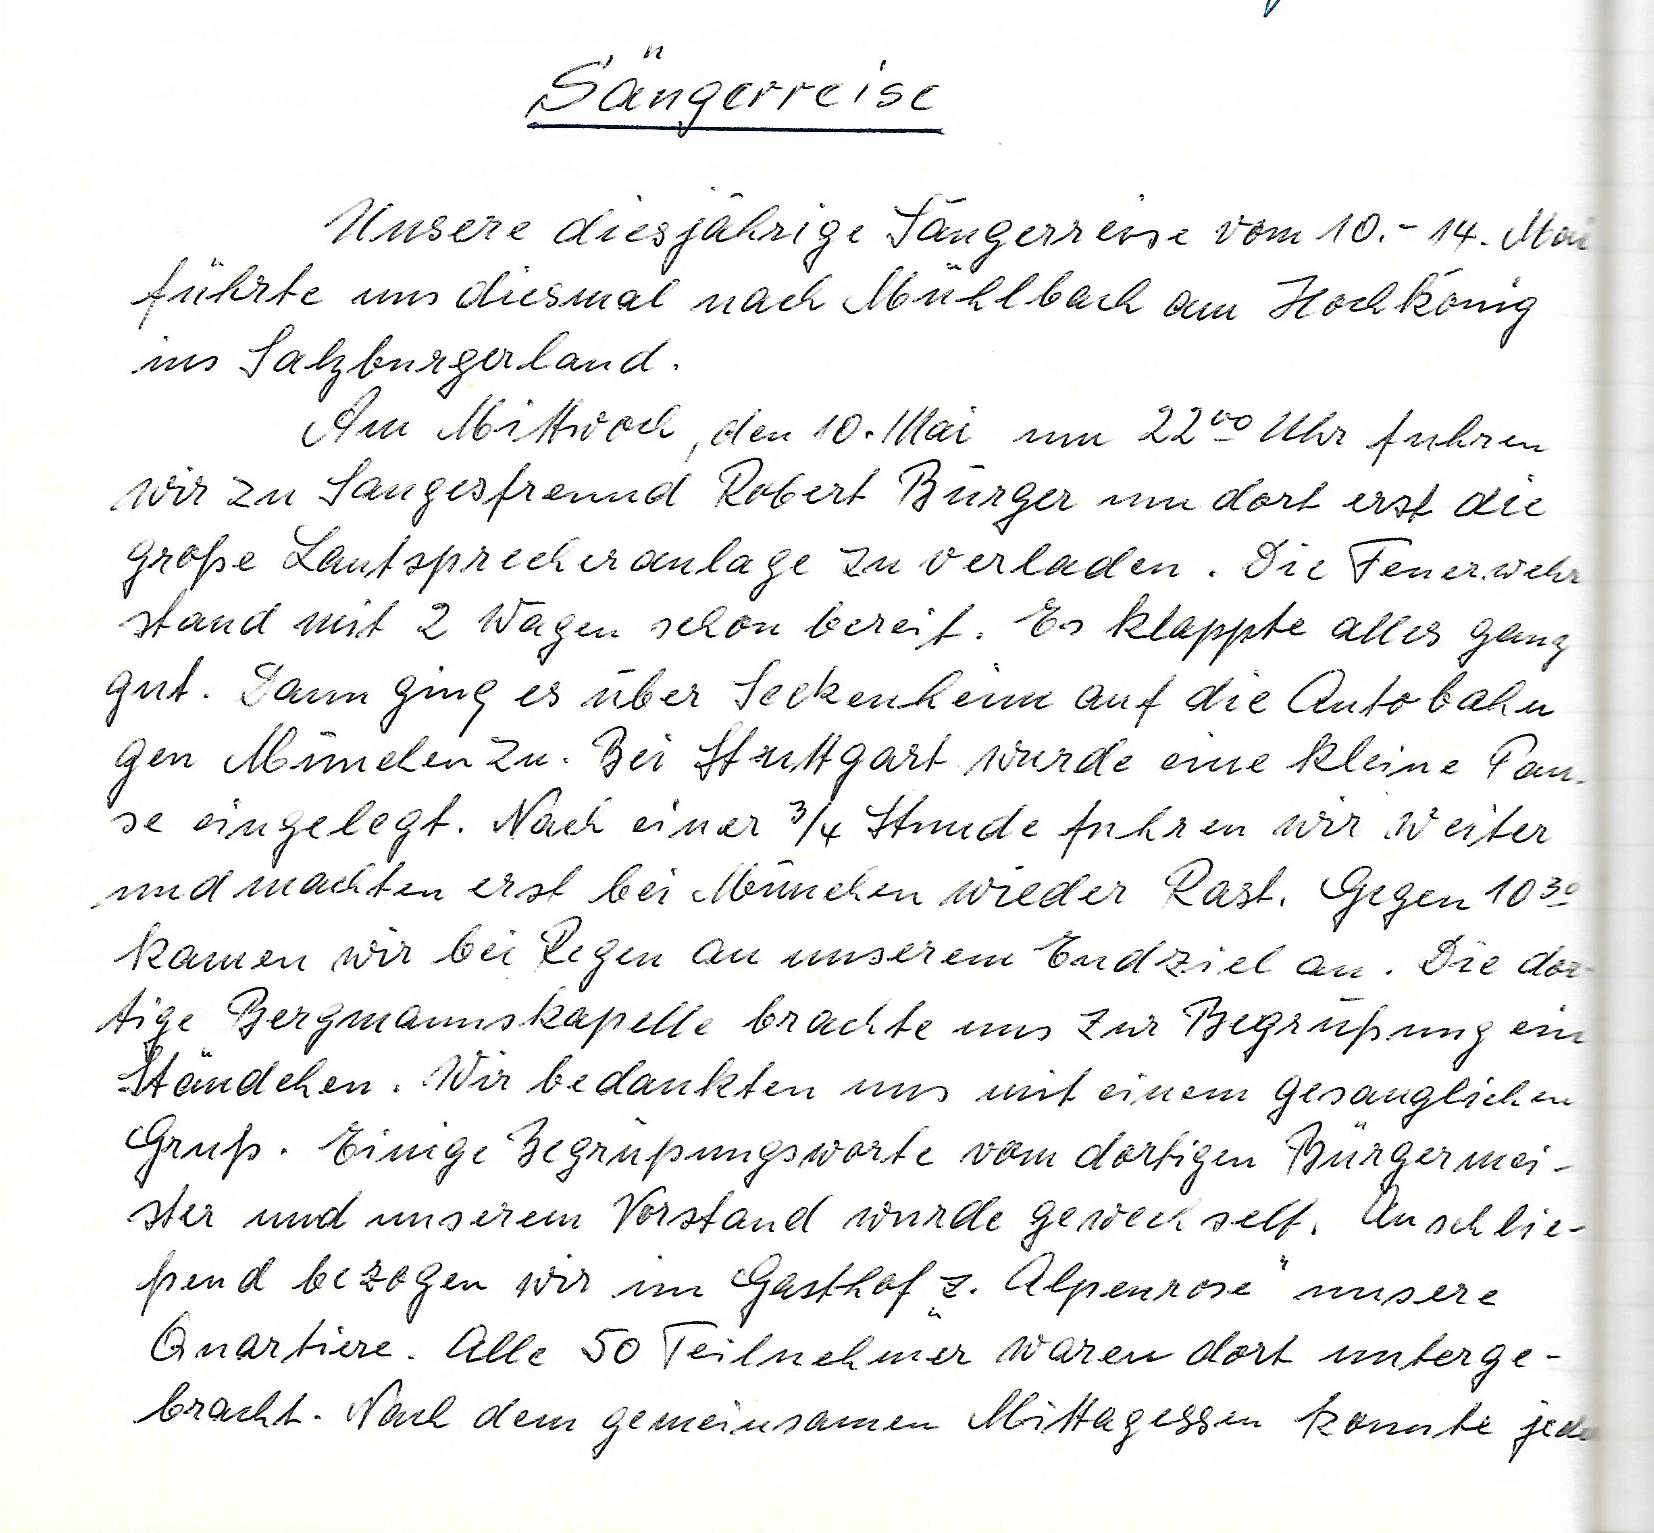 Sängerreise
Unsere diesjährige Sängerreise vom 10.- 14. Mai
führte uns diesmal nach Mühlbach am Hochkönig
ins Salzburgerland.
Am Mittwoch, den 10. Mai um 22⁰⁰ Uhr fuhren
wir zu Sangesfreund Robert Bürger um dort erst die
große Lautsprecheranlage zu verladen. Die Feuerwehr
stand mit 2 Wagen schon bereit. Es klappte alles ganz
gut. Dann ging es über Seckenheim auf die Autobahn
gen München zu. Bei Stuttgart wurde eine kleine Pau-
se eingelegt. Nach einer 3/4 Stunde fuhren wir weiter
und machten erst bei München wieder Rast. Gegen 10³⁰
kamen wir bei Regen an unserem Endziel an. Die dor-
tige Bergmannskapelle brachte uns zur Begrüßung ein
Ständchen. Wir bedankten uns mit einem gesanglichen
Gruß. Einige Begrüßungsworte vom dortigen Bürgermei-
ster und unserem Vorstand wurde gewechselt. Anschlie-
ßend bezogen wir im Gasthof „z. Alpenrose" unsere
Quartiere. Alle 50 Teilnehmer waren dort unterge-
bracht. Nach dem gemeinsamen Mittagessen konnte